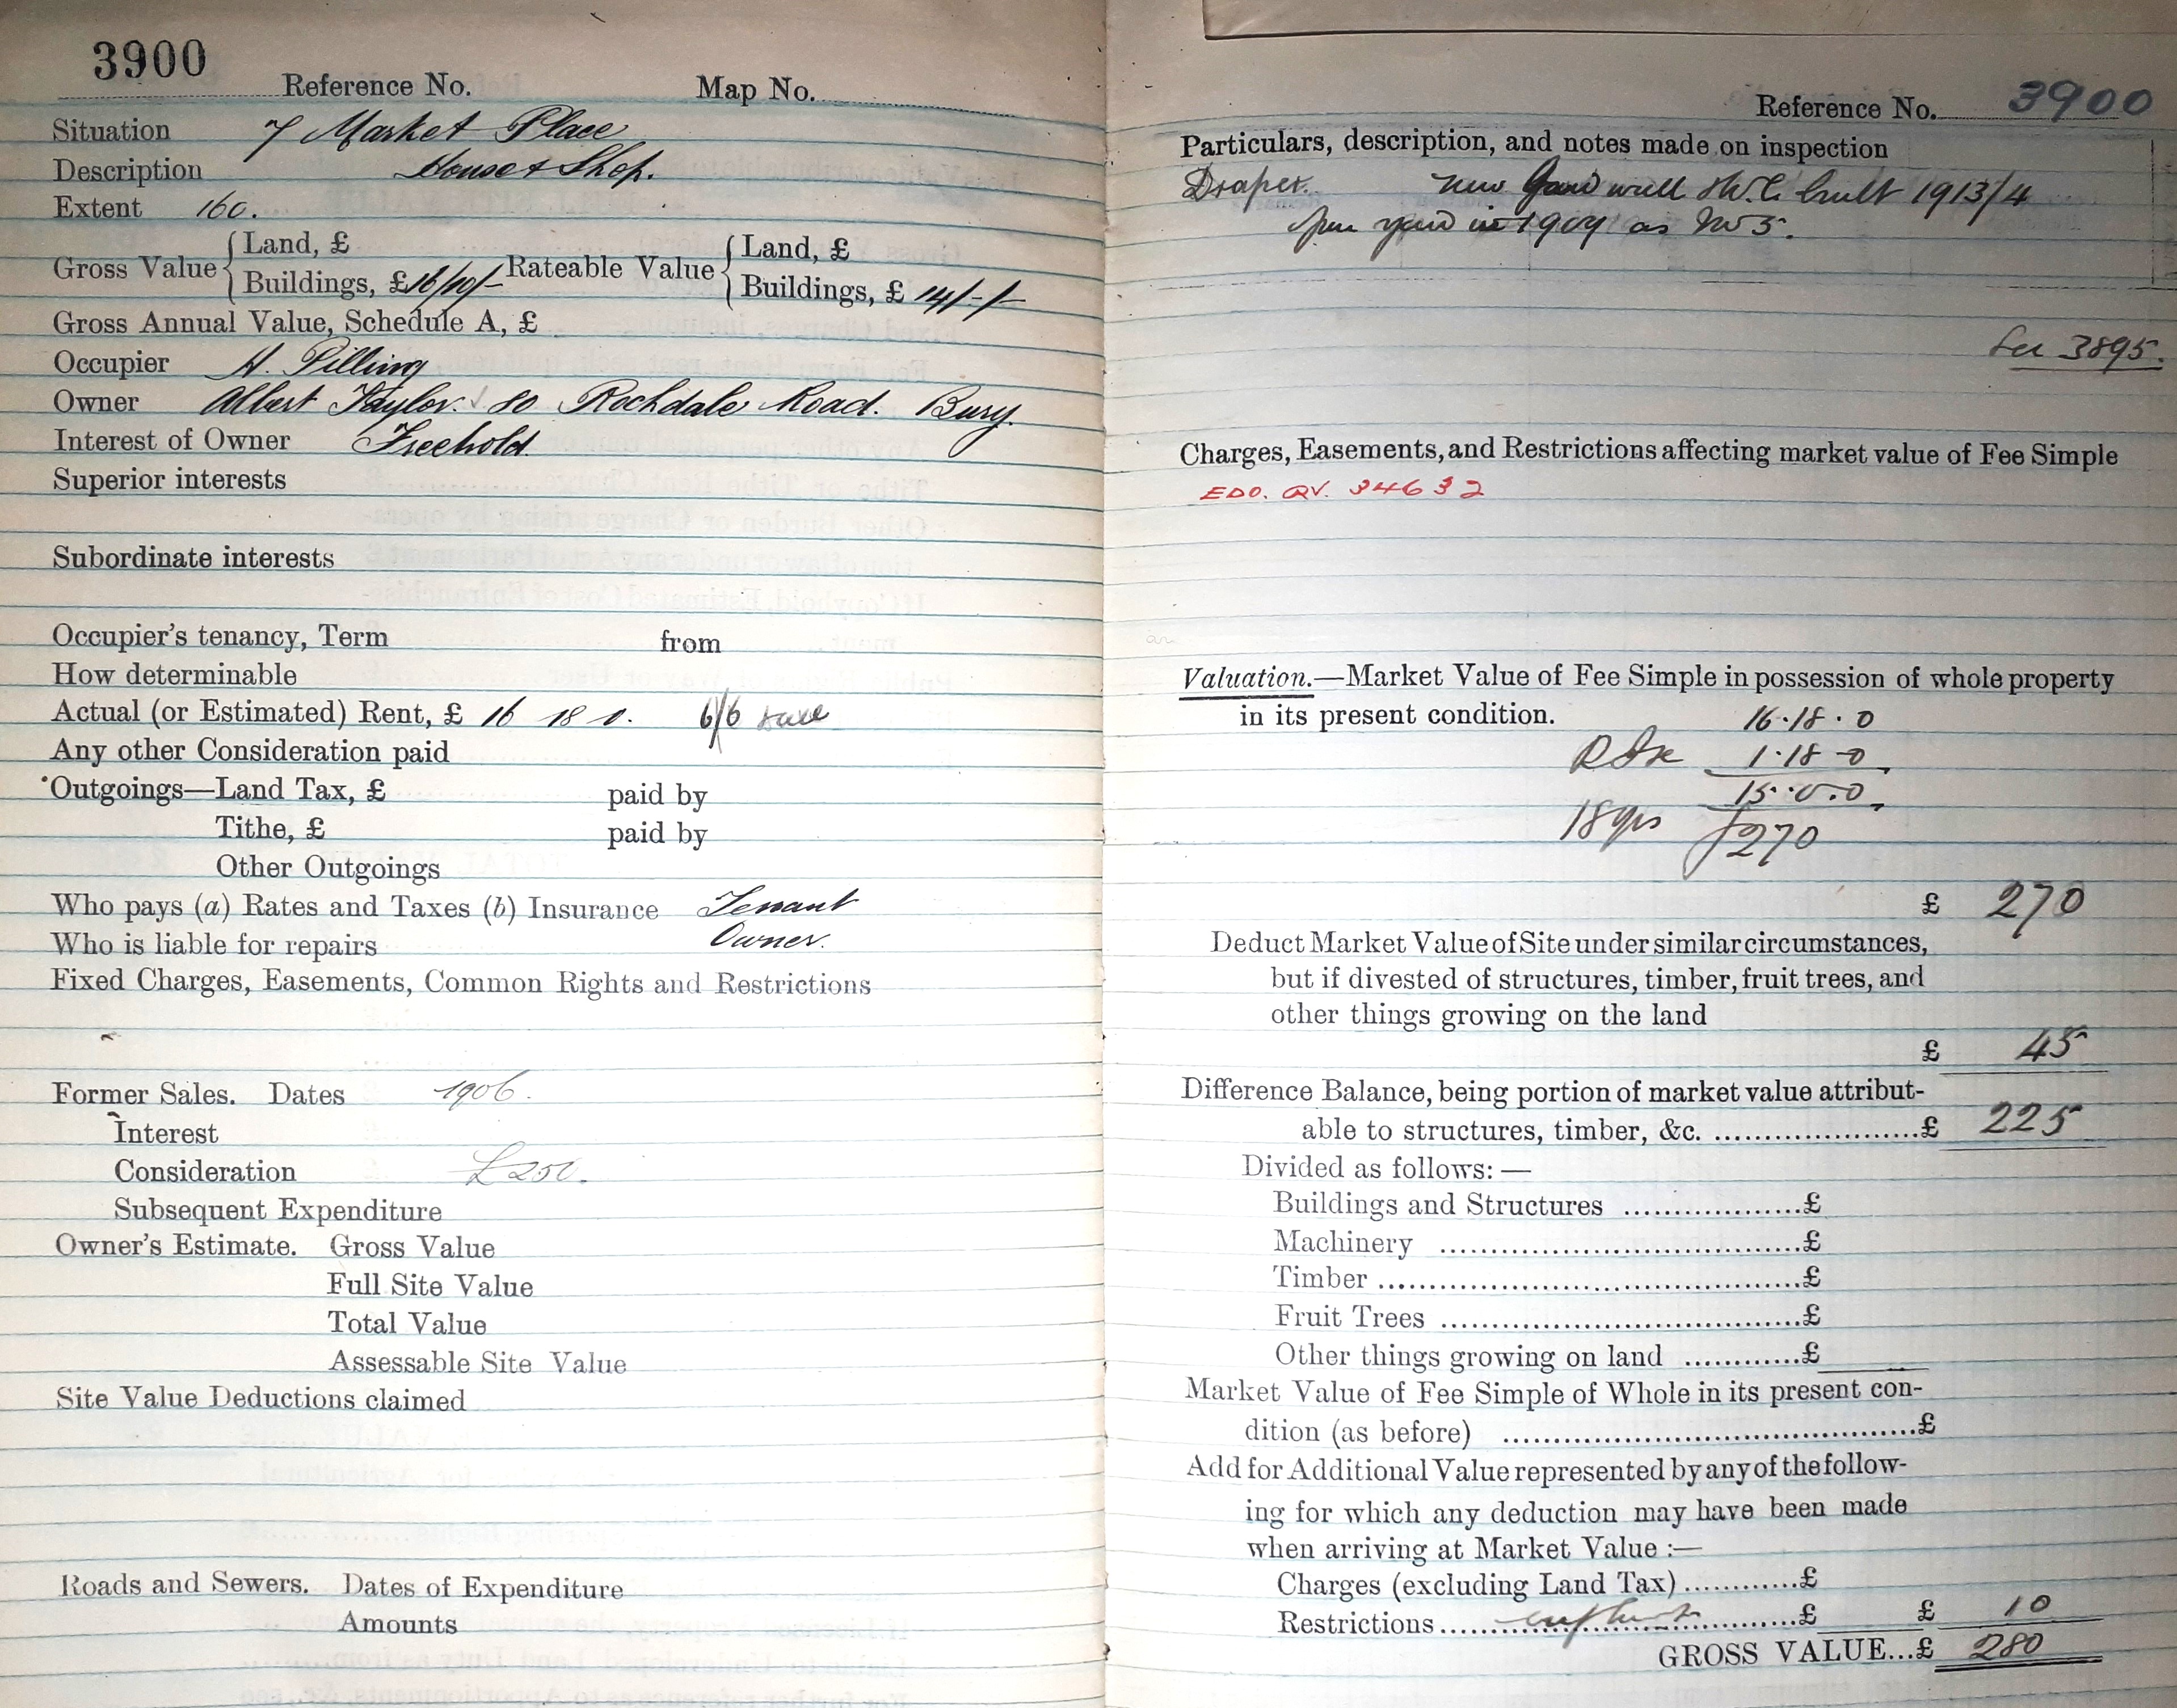 3900
Reference No. Map No.
Situation 7 Market Place
Description House & Shop.
Extent 160.
Gross Value { Land, £
Buildings, £16/10/- Rateable Value { Land, £
Buildings, £ 14/-/-
Gross Annual Value, Schedule A, £
Occupier H. Pilling
Owner Albert Taylor. 80 Rochdale Road. Bury.
Interest of Owner Freehold
Superior interests
Subordinate interests
Occupier's tenancy, Term from
How determinable
Actual (or Estimated) Rent, £ 16 18 0. 6/6
Any other Consideration paid
Outgoings—Land Tax, £ paid by
Tithe, £ paid by
Other Outgoings
Who pays (a) Rates and Taxes (b) Insurance Tenant
Who is liable for repairs Owner.
Fixed Charges, Easements, Common Rights and Restrictions
Former Sales. Dates 1906.
Interest
Consideration £250.
Subsequent Expenditure
Owner's Estimate. Gross Value
Full Site Value
Total Value
Assessable Site Value
Site Value Deductions claimed
Roads and Sewers. Dates of Expenditure
Amounts
Reference No. 3900
Particulars, description, and notes made on inspection
Draper. New Yard wall & W.C. built 1913/4
Open yard in 1909 as No 5.
See 3895.
Charges, Easements, and Restrictions affecting market value of Fee Simple
EDO. QV. 34632
Valuation.—Market Value of Fee Simple in possession of whole property
in its present condition. 16.18.0
1.18-0
15.0.0
18 yrs £270
£ 270
Deduct Market Value of Site under similar circumstances,
but if divested of structures, timber, fruit trees, and
other things growing on the land
£ 45
Difference Balance, being portion of market value attribut-
able to structures, timber, &c. ....................£ 225
Divided as follows:—
Buildings and Structures ..................£
Machinery ....................................£
Timber ..........................................£
Fruit Trees ....................................£
Other things growing on land ............£
Market Value of Fee Simple of Whole in its present con-
dition (as before) .........................................£
Add for Additional Value represented by any of the follow-
ing for which any deduction may have been made
when arriving at Market Value :—
Charges (excluding Land Tax)............£
Restrictions....................................£ £ 10
GROSS VALUE...£ 280